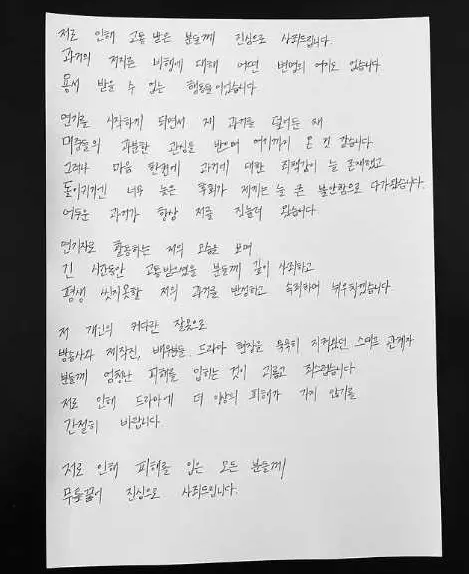 저로 인해 고통 받은 분들께 진심으로 사죄드립니다.
과거의 저지른 비행에 대해 어떤 변명의 여지도 없습니다
용서 받을 수 없는 행동들이었습니다.
연기를 시작하게 되면서 제 과거를 덮어둔 채
대중들의 과분한 관심을 받으며 여기까지 온 것 같습니다.
그러나 마음 한켠에 과거에 대한 죄책감이 늘 존재했고
돌이키기엔 너무 늦은 후회가 제게는 늘 큰 불안함으로 다가왔습니다.
어두운 과거가 항상 저를 짓눌러 왔습니다.
연기자로 활동하는 저의 모습을 보며
긴 시간동안 고통받으셨을 분들께 깊이 사죄하고
평생 씻지못할 저의 과거를 반성하고 속죄하며 뉘우치겠습니다.
저 개인의 커다란 잘못으로
방송사와 제작진, 배우분들, 드라마 현장을 묵묵히 지켜왔던 스태프 관계자
분들께 엄청난 피해를 입히는 것이 괴롭고 죄스럽습니다
저로 인해 드라마에 더 이상의 피해가 가지 않기를
간절히 바랍니다.
저로 인해 피해를 입은 모든 분들께
무릎꿇어 진심으로 사죄드립니다.